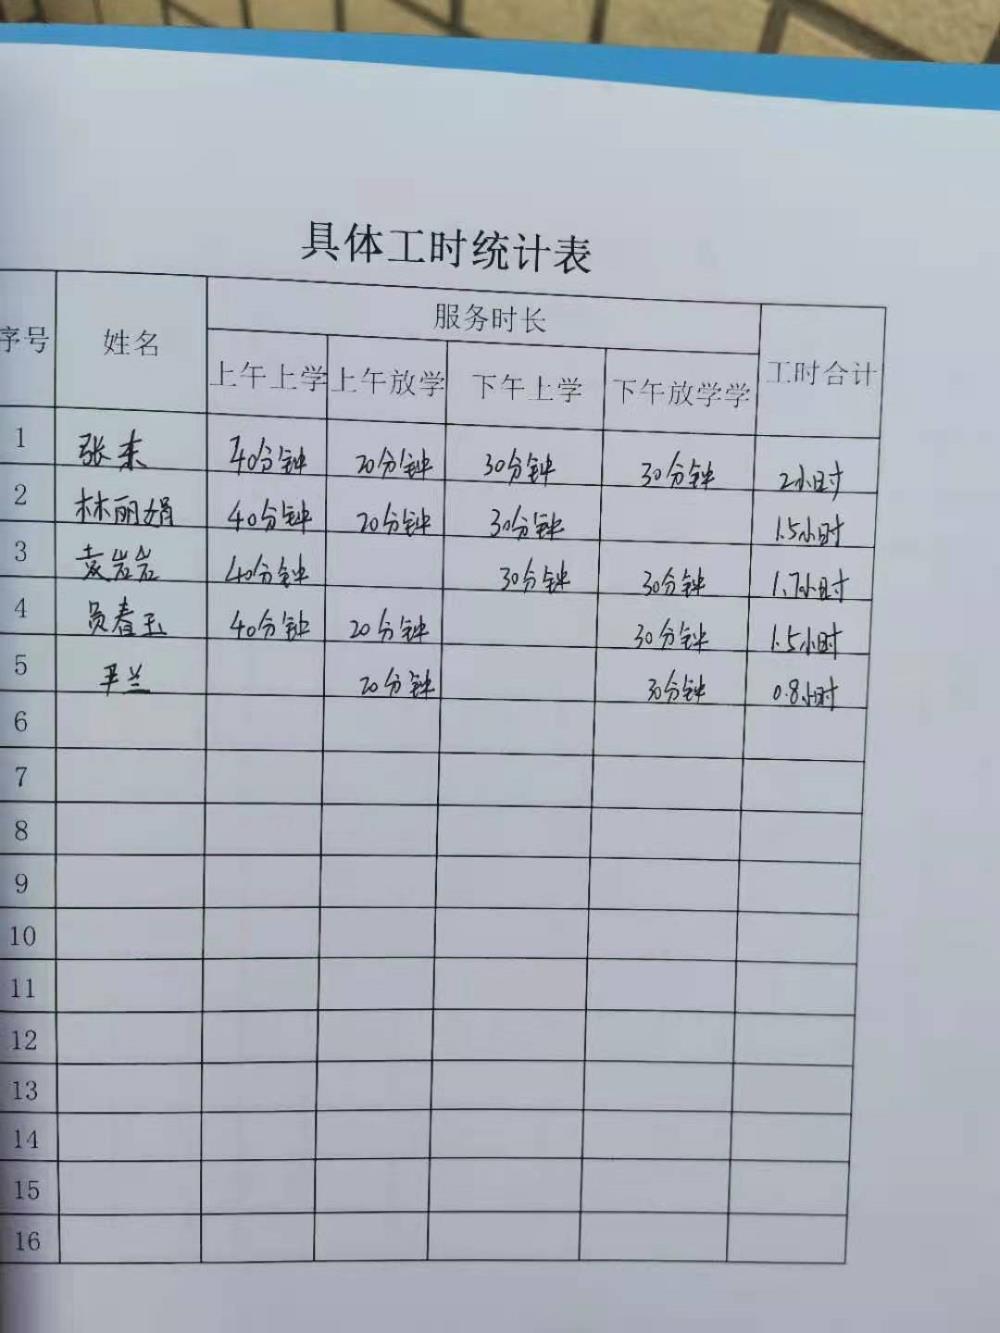 具体工时统计表
序号 姓名 服务时长 工时合计
上午上学 上午放学 下午上学 下午放学学
1 张东 40分钟 20分钟 30分钟 30分钟 2小时
2 林丽娟 40分钟 20分钟 30分钟 1.5小时
3 袁岩岩 40分钟 30分钟 30分钟 1.7小时
4 员春玉 40分钟 20分钟 30分钟 1.5小时
5 平兰 20分钟 30分钟 0.8小时
6
7
8
9
10
11
12
13
14
15
16